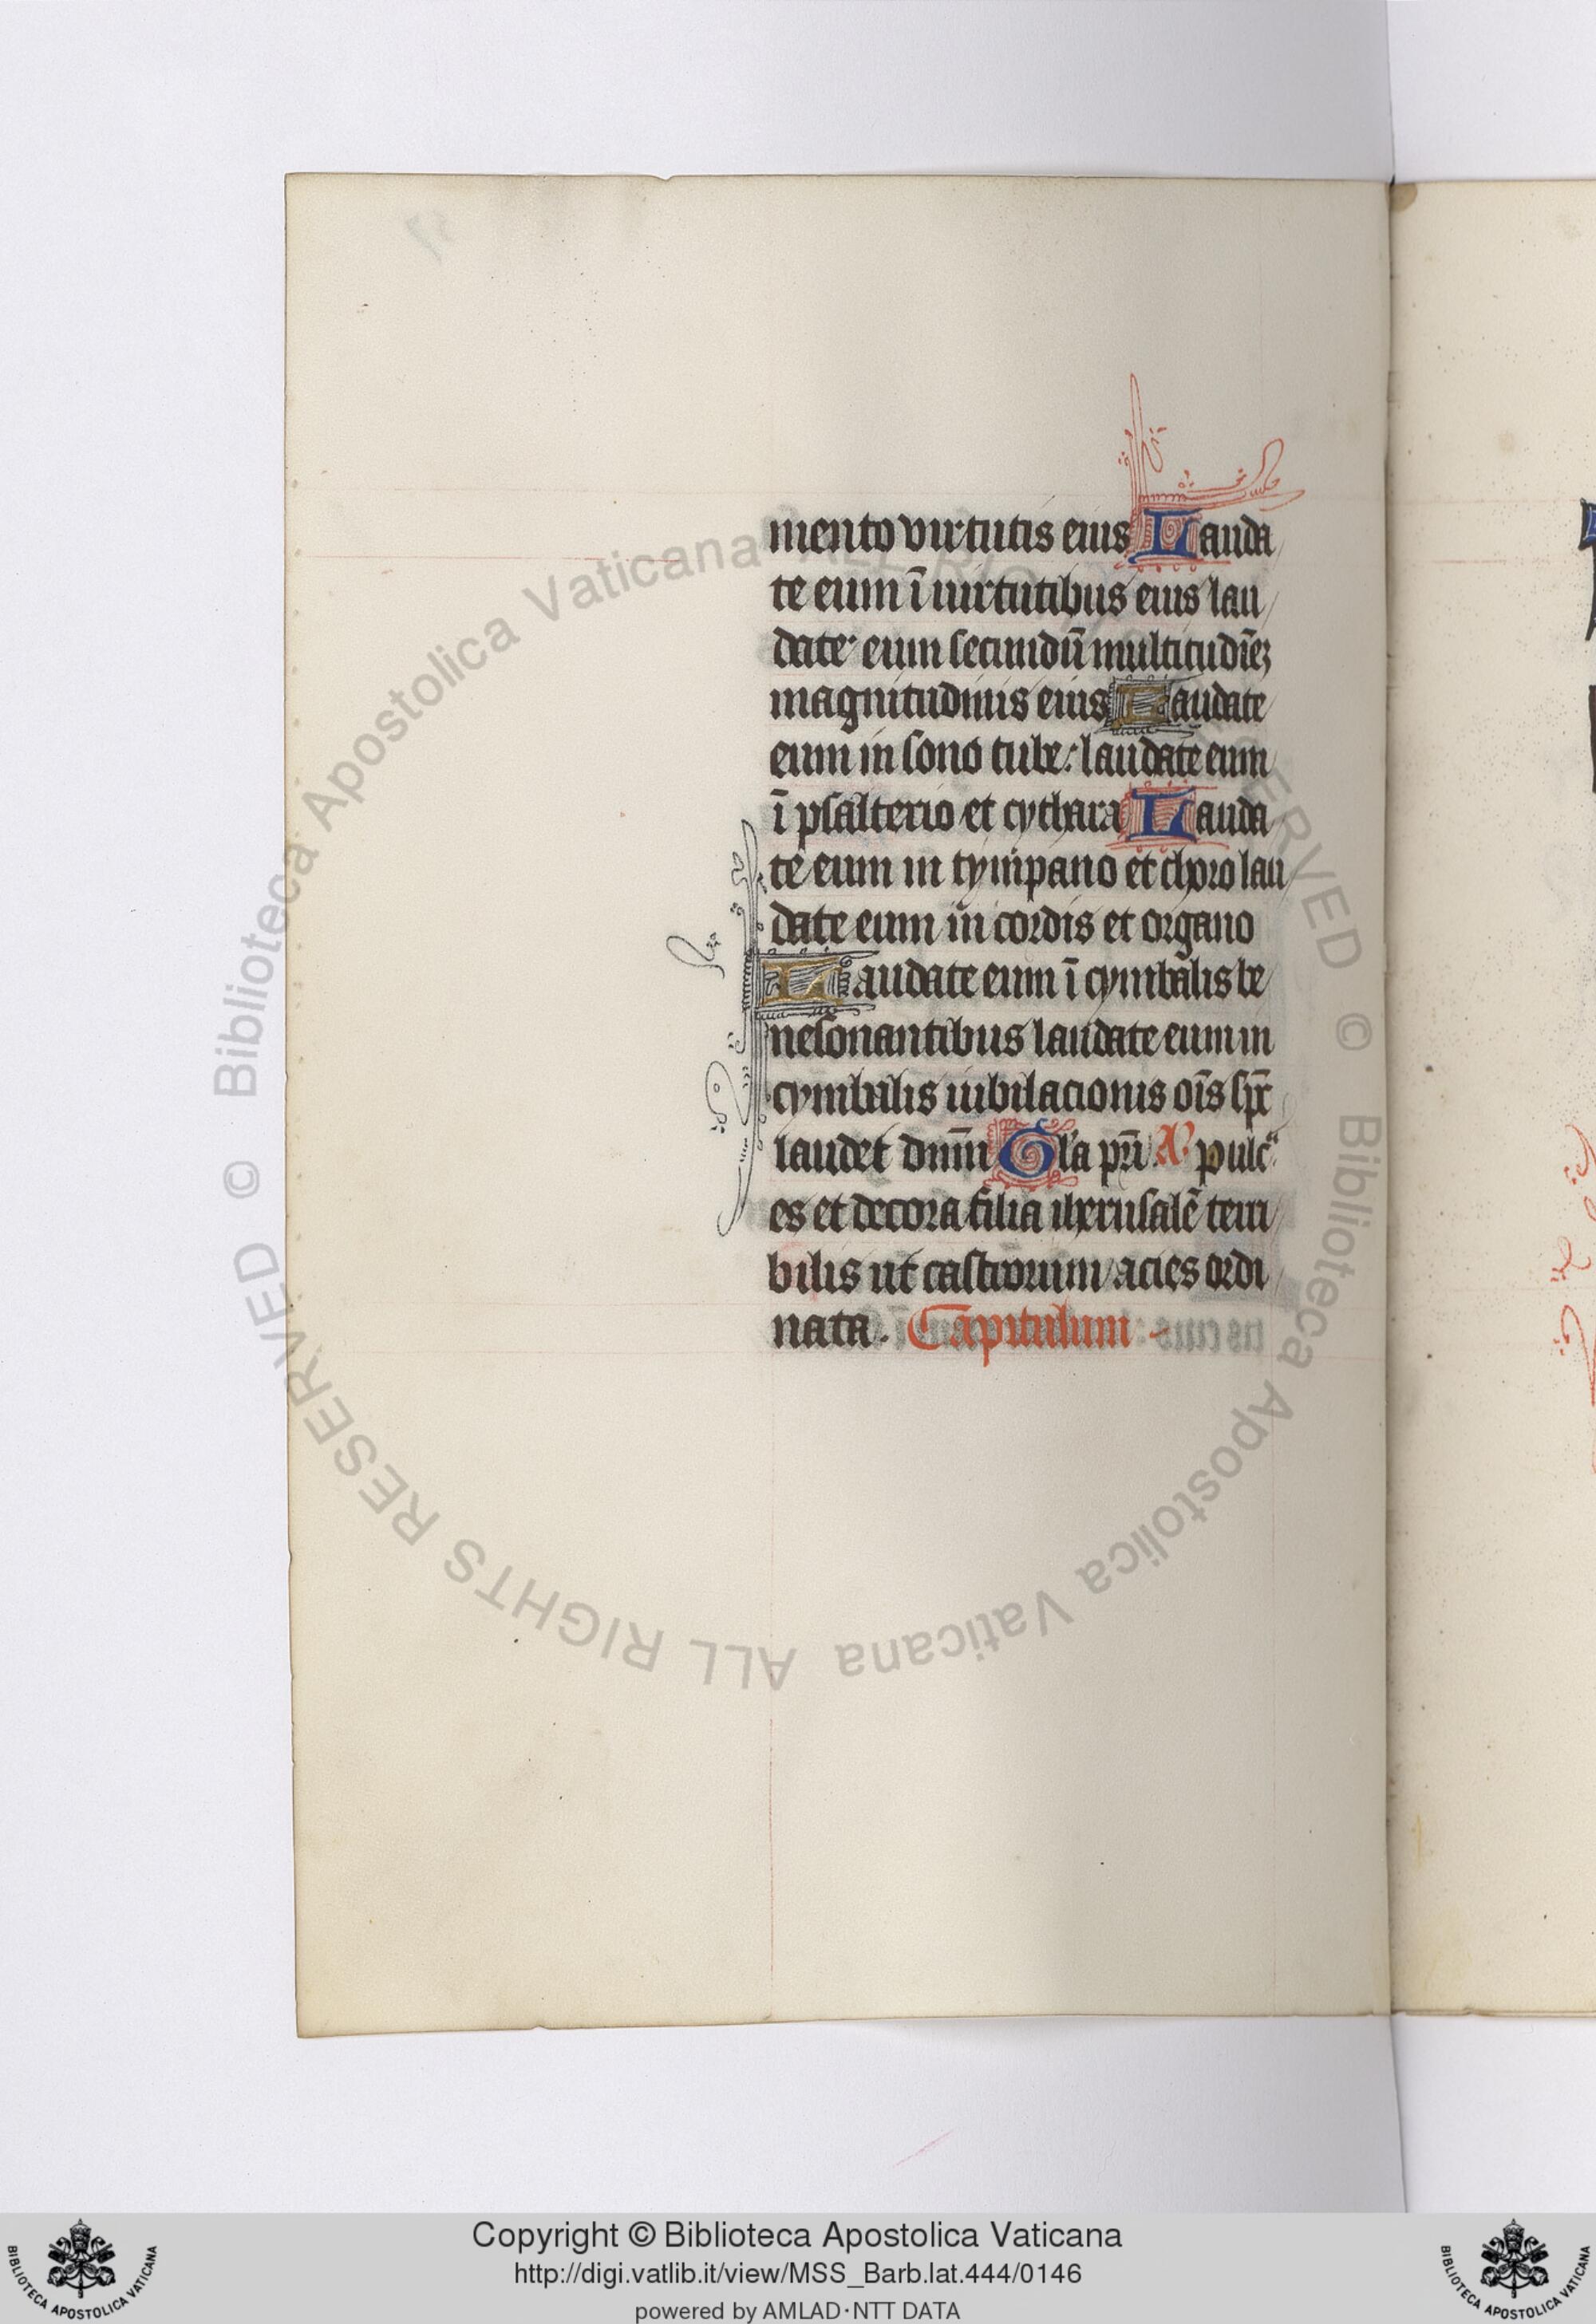 mento virtutis eius Lauda
te eum ī uirtutibus eius lau
date eum secundū multitudīeꝫ
magnitudinis eius Laudate
eum in sono tube: laudate eum
ī psalterio et cythara Lauda
te eum in tympano et choro lau
date eum in cordis et organo
Laudate eum ī cymbalis be
nesonantibus laudate eum in
cymbalis iubilacionis oīs sp̄c
laudet dnm̄ Gl'a pr̄i. A' pulcᵃ
es et decora filia iherusalē terri
bilis ut castrorum acies ordi
nata. Capitulum
© Biblioteca Apostolica Vaticana ALL RIGHTS RESERVED © Biblioteca Apostolica Vaticana ALL RIGHTS RESERVED
Copyright © Biblioteca Apostolica Vaticana
http://digi.vatlib.it/view/MSS_Barb.lat.444/0146
powered by AMLAD·NTT DATA
BIBLIOTECA APOSTOLICA VATICANA
BIBLIOTECA APOSTOLICA VATICANA